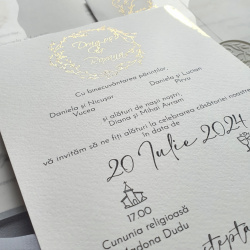 de
Cu binecuvântarea părinților,
Daniela și Nicușor
Vucea
Daniela și Lucian
Pîrvu
și alături de nașii noștri,
Diana și Mihai Avram
vă invităm să ne fiți alături la celebrarea căsătoriei noastre
în data de
20 Iulie 2024
17.00
Cununia religioasă
Madona Dudu